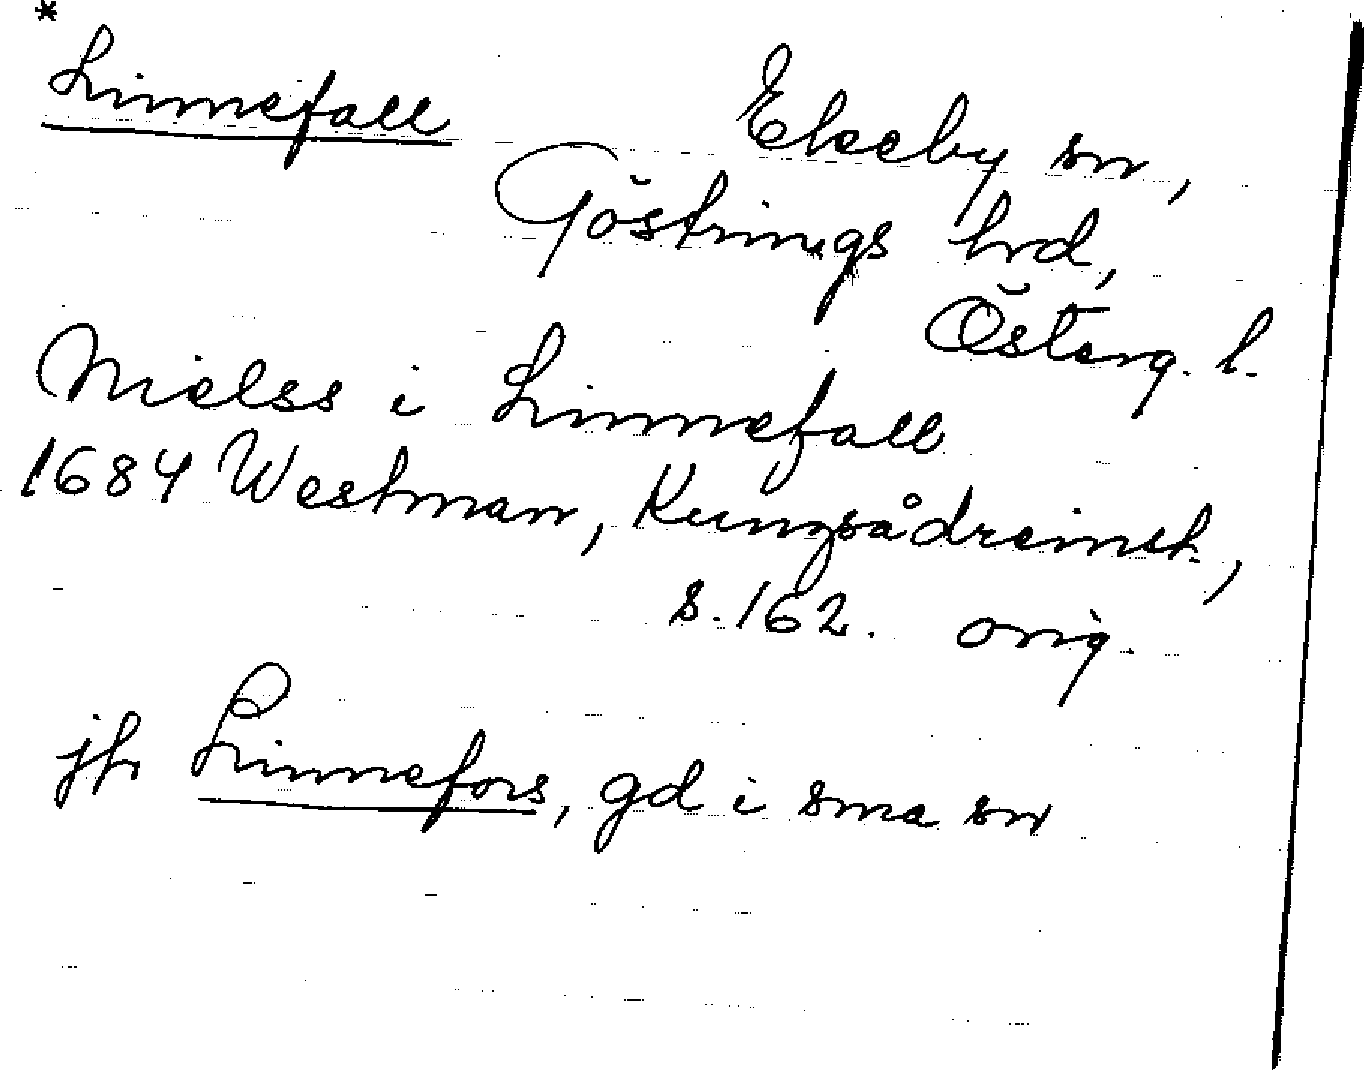 *
Linnefall Ekeby sn,
Göstrings hrd,
Österg. l.
Nielss i Linnefall
1684 Westman, Kungsådreinsk.,
s. 162. orig.
jfr Linnefors, gd i sma sn